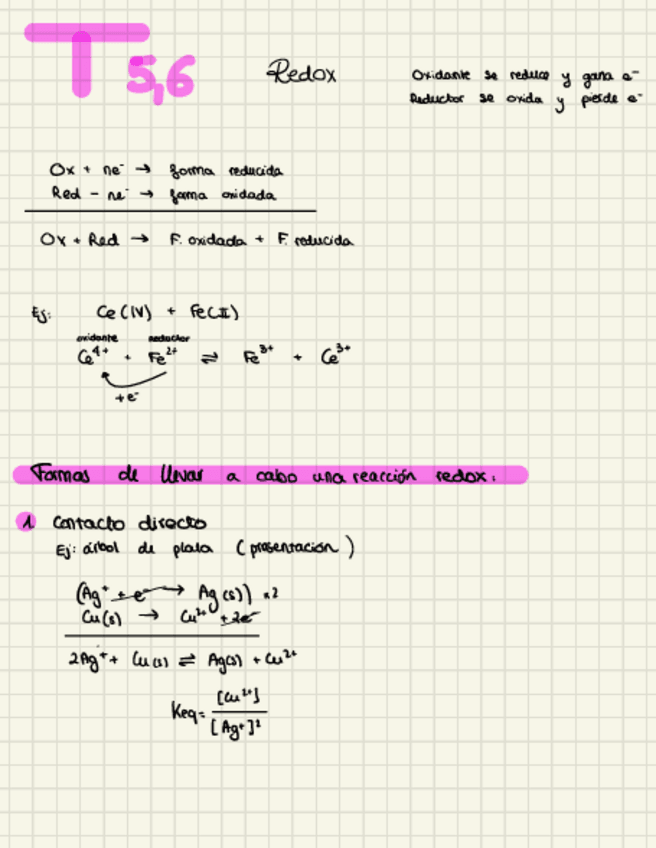 T 5,6
Redox
Oxidante se reduce y gana e⁻
Reductor se oxida y pierde e⁻
Ox + ne⁻ → forma reducida
Red - ne⁻ → forma oxidada
Ox + Red → F. oxidada + F. reducida
Ej: Ce(IV) + Fe(II)
oxidante reductor
Ce⁴⁺ + Fe²⁺ ⇌ Fe³⁺ + Ce³⁺
+e⁻
Formas de llevar a cabo una reacción redox.
1 Contacto directo
Ej: árbol de plata (presentación)
(Ag⁺ + e⁻ → Ag(s)) x2
Cu(s) → Cu²⁺ + 2e⁻
2Ag⁺ + Cu(s) ⇌ Ag(s) + Cu²⁺
Keq = [Cu²⁺]
[Ag⁺]²